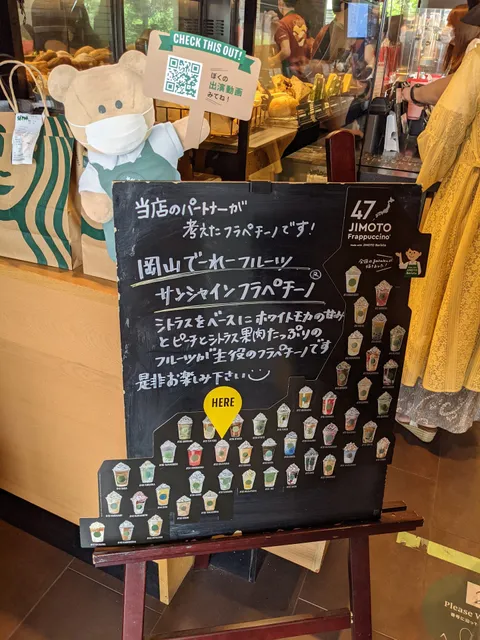 CHECK THIS OUT!
ぼくの
出演動画
みてね!
当店のパートナーが
考えたフラペチーノです!
岡山でーれーフルーツ
サンシャインフラペチーノ®
シトラスをベースにホワイトモカの甘み
とピーチとシトラス果肉たっぷりの
フルーツが主役のフラペチーノです
是非お楽しみ下さい
47
JIMOTO
Frappuccino
HERE
Please W